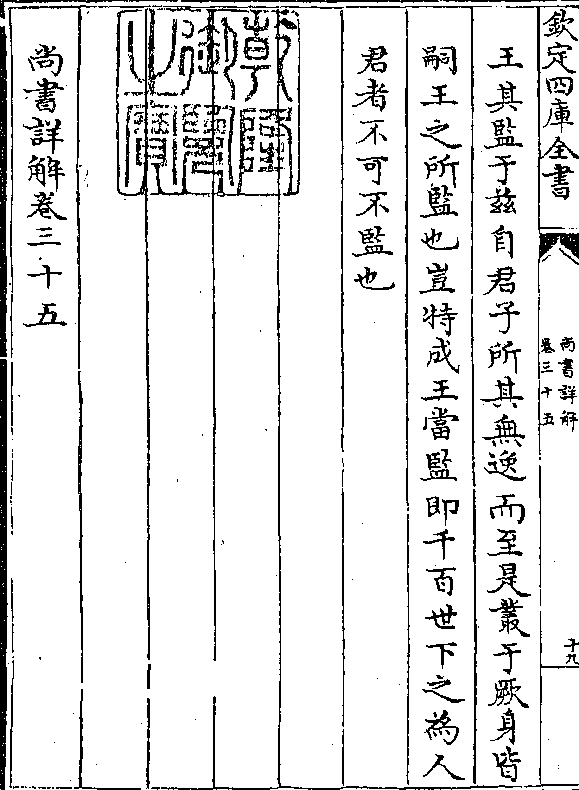 欽定四庫全書
尚書詳解
卷三十五
十九
王其監于茲自君子所其無逸而至是叢于厥身皆
嗣王之所監也豈特成王當監即千百世下之為人
君者不可不監也
乾隆
御覽
之寶
尚書詳解卷三十五